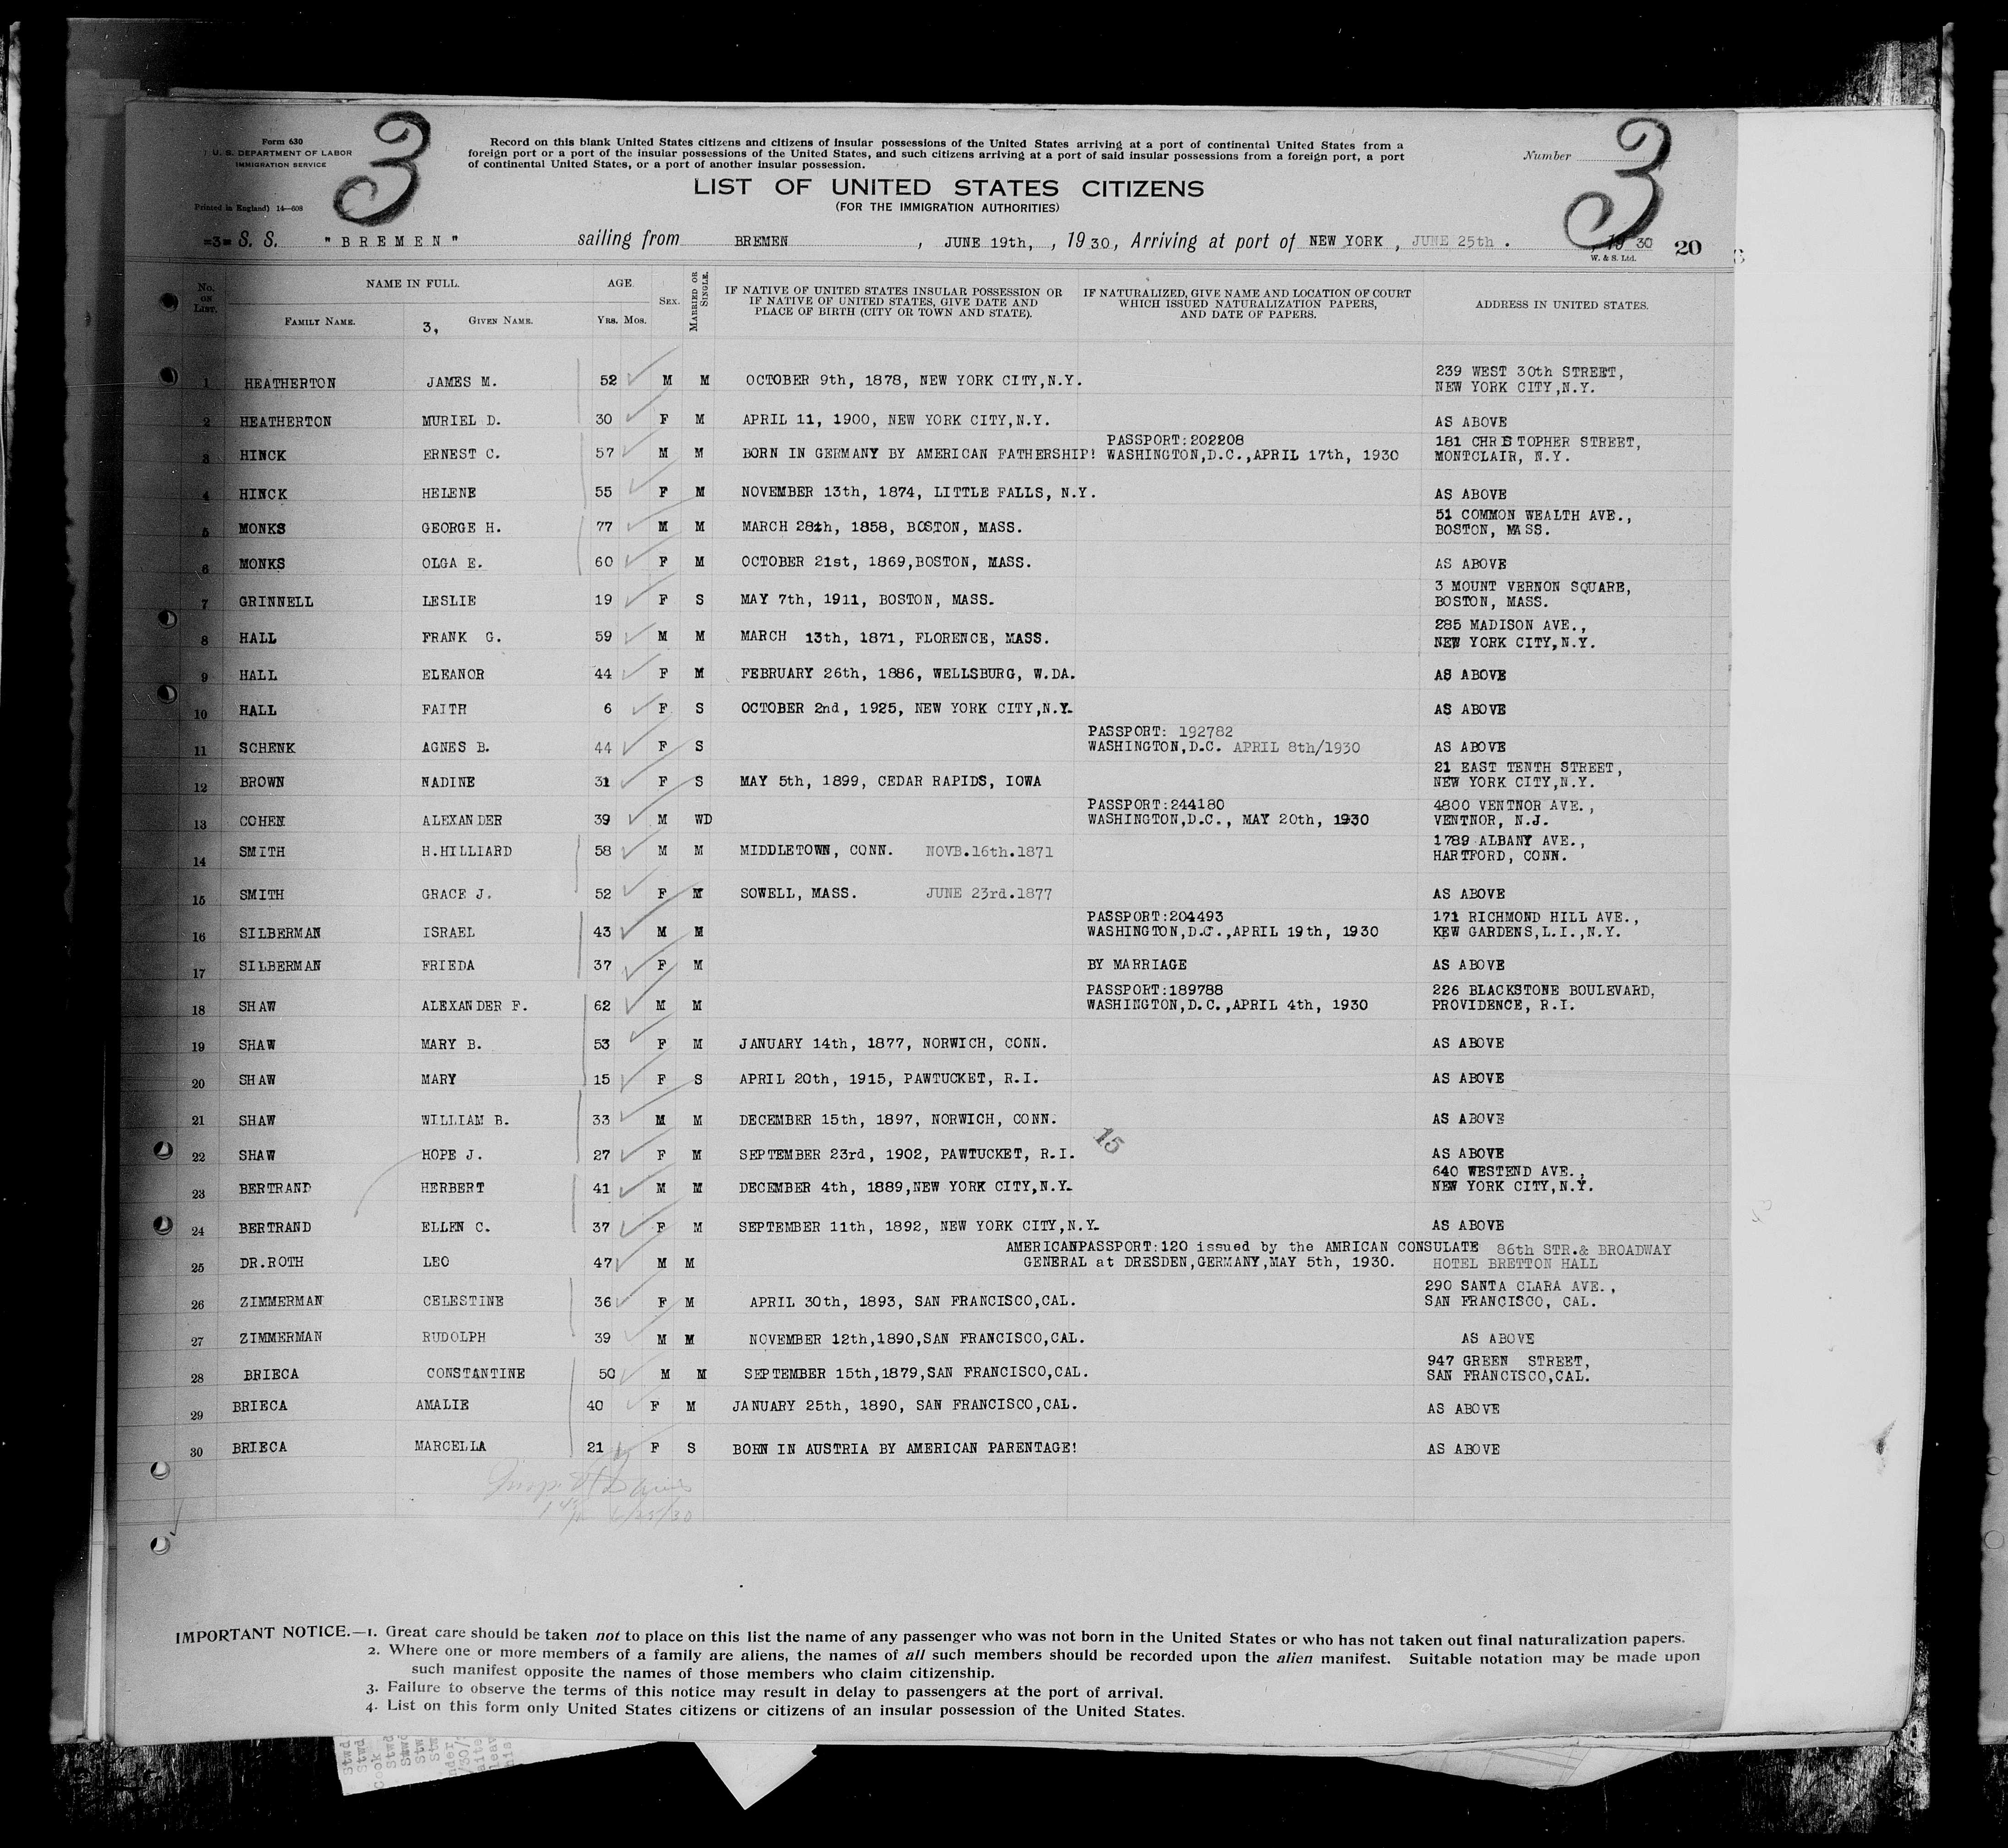 Form 630
U. S. DEPARTMENT OF LABOR
IMMIGRATION SERVICE
Printed in England) 14—608
3
Record on this blank United States citizens and citizens of insular possessions of the United States arriving at a port of continental United States from a
foreign port or a port of the insular possessions of the United States, and such citizens arriving at a port of said insular possessions from a foreign port, a port
of continental United States, or a port of another insular possession.
Number
3
LIST OF UNITED STATES CITIZENS
(FOR THE IMMIGRATION AUTHORITIES)
=3= S. S. "BREMEN" sailing from BREMEN , JUNE 19th, , 1930, Arriving at port of NEW YORK , JUNE 25th . , 1930 20
W. & S. Ltd.
No. ON LIST. NAME IN FULL. AGE. SEX. MARRIED OR SINGLE. IF NATIVE OF UNITED STATES INSULAR POSSESSION OR IF NATIVE OF UNITED STATES, GIVE DATE AND PLACE OF BIRTH (CITY OR TOWN AND STATE). IF NATURALIZED, GIVE NAME AND LOCATION OF COURT WHICH ISSUED NATURALIZATION PAPERS, AND DATE OF PAPERS. ADDRESS IN UNITED STATES.
FAMILY NAME. 3, GIVEN NAME. YRS. MOS.
1 HEATHERTON JAMES M. 52 M M OCTOBER 9th, 1878, NEW YORK CITY,N.Y. 239 WEST 30th STREET,
NEW YORK CITY,N.Y.
2 HEATHERTON MURIEL D. 30 F M APRIL 11, 1900, NEW YORK CITY,N.Y. AS ABOVE
PASSPORT:202208 181 CHRISTOPHER STREET,
3 HINCK ERNEST C. 57 M M BORN IN GERMANY BY AMERICAN FATHERSHIP! WASHINGTON,D.C.,APRIL 17th, 1930 MONTCLAIR, N.Y.
4 HINCK HELENE 55 F M NOVEMBER 13th, 1874, LITTLE FALLS, N.Y. AS ABOVE
51 COMMON WEALTH AVE.,
5 MONKS GEORGE H. 77 M M MARCH 28th, 1858, BOSTON, MASS. BOSTON, MASS.
6 MONKS OLGA E. 60 F M OCTOBER 21st, 1869,BOSTON, MASS. AS ABOVE
3 MOUNT VERNON SQUARE,
7 GRINNELL LESLIE 19 F S MAY 7th, 1911, BOSTON, MASS. BOSTON, MASS.
285 MADISON AVE.,
8 HALL FRANK G. 59 M M MARCH 13th, 1871, FLORENCE, MASS. NEW YORK CITY,N.Y.
9 HALL ELEANOR 44 F M FEBRUARY 26th, 1886, WELLSBURG, W.DA. AS ABOVE
10 HALL FAITH 6 F S OCTOBER 2nd, 1925, NEW YORK CITY,N.Y. AS ABOVE
PASSPORT: 192782
11 SCHENK AGNES B. 44 F S WASHINGTON,D.C. APRIL 8th/1930 AS ABOVE
21 EAST TENTH STREET,
12 BROWN NADINE 31 F S MAY 5th, 1899, CEDAR RAPIDS, IOWA NEW YORK CITY,N.Y.
PASSPORT:244180 4800 VENTNOR AVE.,
13 COHEN ALEXANDER 39 M WD WASHINGTON,D.C., MAY 20th, 1930 VENTNOR, N.J.
1789 ALBANY AVE.,
14 SMITH H.HILLIARD 58 M M MIDDLETOWN, CONN. NOVB.16th.1871 HARTFORD, CONN.
15 SMITH GRACE J. 52 F M SOWELL, MASS. JUNE 23rd.1877 AS ABOVE
PASSPORT:204493 171 RICHMOND HILL AVE.,
16 SILBERMAN ISRAEL 43 M M WASHINGTON,D.C.,APRIL 19th, 1930 KEW GARDENS,L.I.,N.Y.
17 SILBERMAN FRIEDA 37 F M BY MARRIAGE AS ABOVE
PASSPORT:189788 226 BLACKSTONE BOULEVARD,
18 SHAW ALEXANDER F. 62 M M WASHINGTON,D.C.,APRIL 4th, 1930 PROVIDENCE, R.I.
19 SHAW MARY B. 53 F M JANUARY 14th, 1877, NORWICH, CONN. AS ABOVE
20 SHAW MARY 15 F S APRIL 20th, 1915, PAWTUCKET, R.I. AS ABOVE
21 SHAW WILLIAM B. 33 M M DECEMBER 15th, 1897, NORWICH, CONN. AS ABOVE
15
22 SHAW HOPE J. 27 F M SEPTEMBER 23rd, 1902, PAWTUCKET, R.I. AS ABOVE
640 WESTEND AVE.,
23 BERTRAND HERBERT 41 M M DECEMBER 4th, 1889,NEW YORK CITY,N.Y. NEW YORK CITY,N.Y.
24 BERTRAND ELLEN C. 37 F M SEPTEMBER 11th, 1892, NEW YORK CITY,N.Y. AS ABOVE
AMERICANPASSPORT:120 issued by the AMRICAN CONSULATE 86th STR.& BROADWAY
25 DR.ROTH LEO 47 M M GENERAL at DRESDEN,GERMANY,MAY 5th, 1930. HOTEL BRETTON HALL
290 SANTA CLARA AVE.,
26 ZIMMERMAN CELESTINE 36 F M APRIL 30th, 1893, SAN FRANCISCO,CAL. SAN FRANCISCO, CAL.
27 ZIMMERMAN RUDOLPH 39 M M NOVEMBER 12th,1890,SAN FRANCISCO,CAL. AS ABOVE
947 GREEN STREET,
28 BRIECA CONSTANTINE 50 M M SEPTEMBER 15th,1879,SAN FRANCISCO,CAL. SAN FRANCISCO,CAL.
29 BRIECA AMALIE 40 F M JANUARY 25th, 1890, SAN FRANCISCO,CAL. AS ABOVE
30 BRIECA MARCELLA 21 F S BORN IN AUSTRIA BY AMERICAN PARENTAGE! AS ABOVE
6/25/30
IMPORTANT NOTICE.—1. Great care should be taken not to place on this list the name of any passenger who was not born in the United States or who has not taken out final naturalization papers.
2. Where one or more members of a family are aliens, the names of all such members should be recorded upon the alien manifest. Suitable notation may be made upon
such manifest opposite the names of those members who claim citizenship.
3. Failure to observe the terms of this notice may result in delay to passengers at the port of arrival.
4. List on this form only United States citizens or citizens of an insular possession of the United States.
Stwd
Stwd
Cook
Stwd
Stwd
Stwd